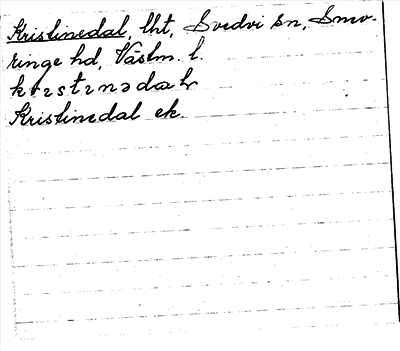 Kristinedal, lht, Svedvi sn, Snev-
ringe hd, Västm. l.
Kristinedal ek.